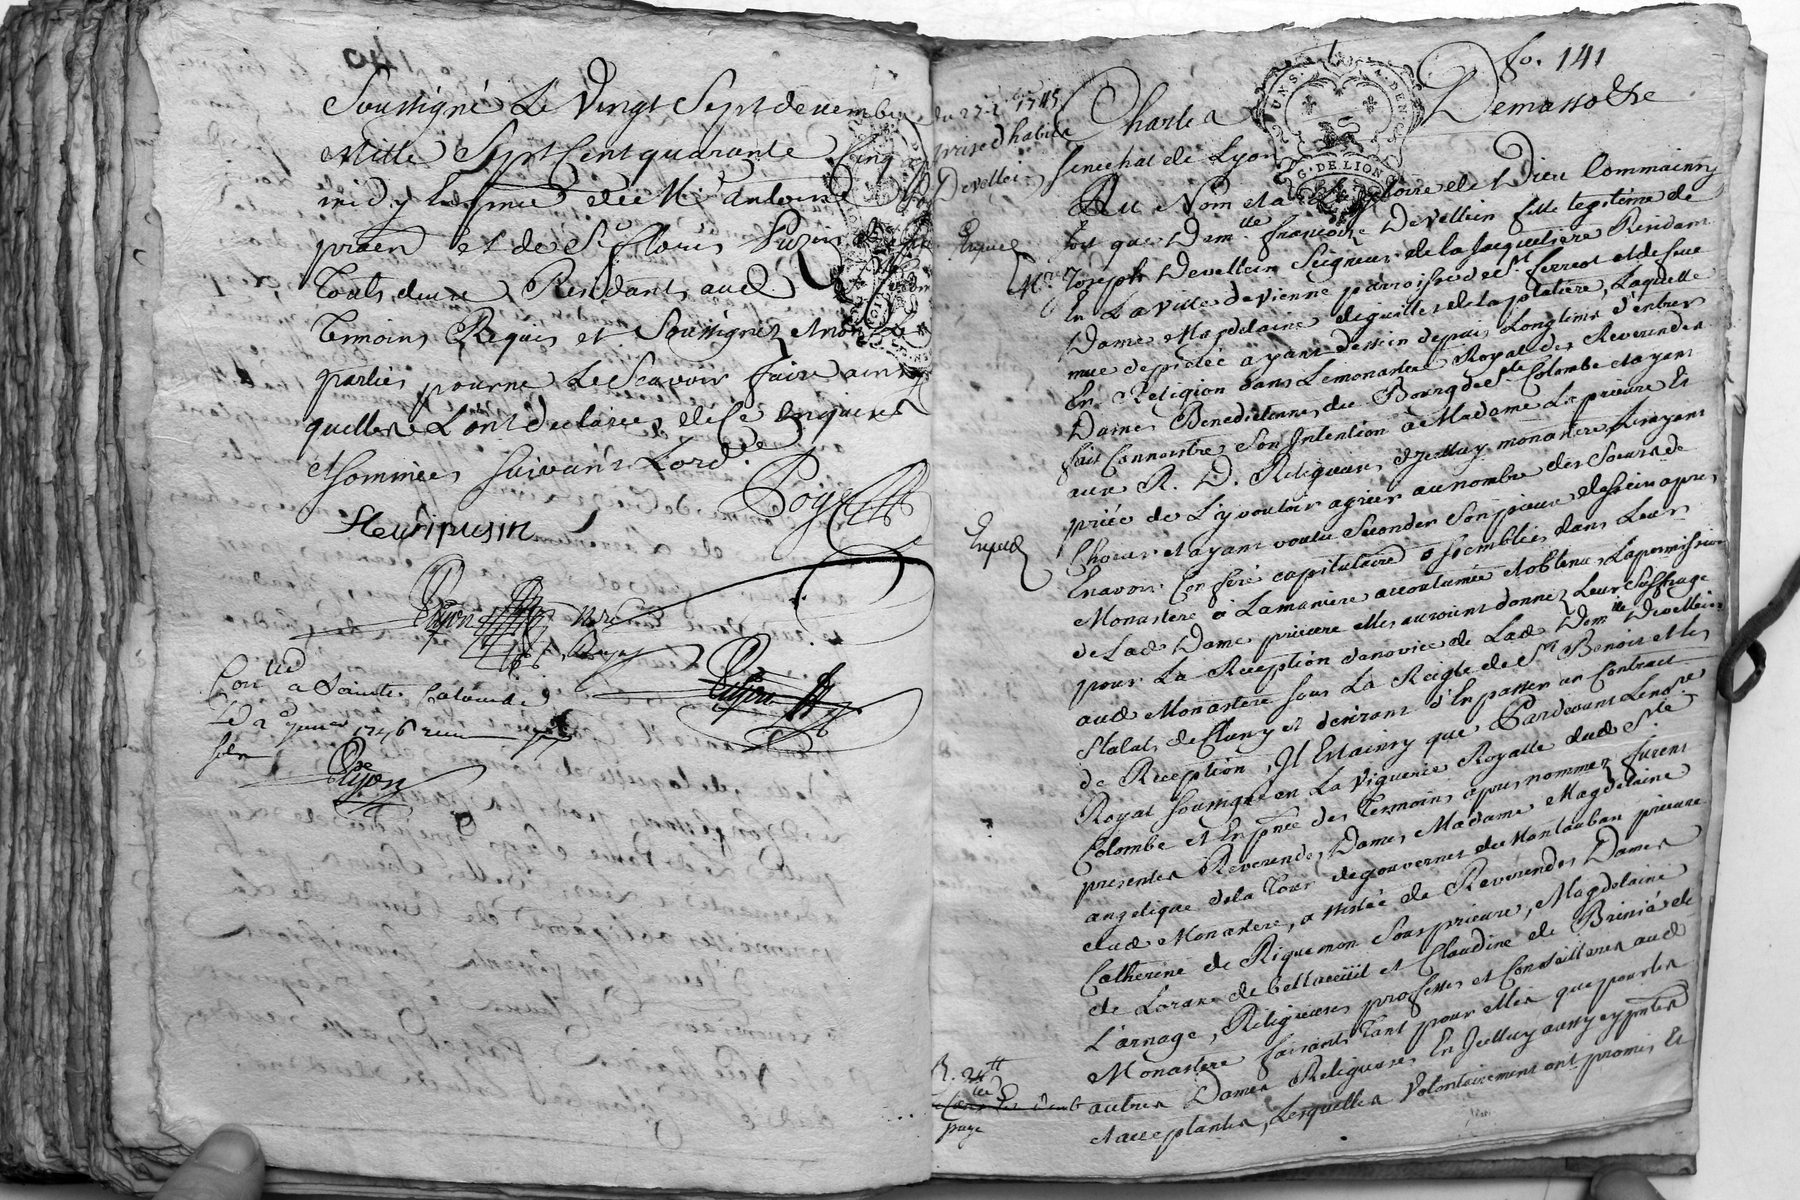 Soussigné Le Vingt Sept decembre
Mille Sept Cent quarante Cinq
midy En pnce de Me antoine
et de Sr fleury Puzin
Touts deux Residants aud
Temoins Requis et Soussignez et non les
parties pour ne Le Scavoir faire ainsy
quelles L'ont declarées de Ce Enquises
et Sommées Suivant Lordce
fleuripusin
Contllé a Sainte Colombe
Le 2e janvier 1746
fo. 141
Du 27e Xbre 1745
prise d'habit
Devellein
Charles Demasso De
Senechal de Lyon
UNS. G. DE LION
Au Nom et a la gloire de Dieu Commainsy
Soit que Demlle françoise Devellein fille legitime de
Joseph Devellein Seigneur de la Jacquetiere Residant
En La Ville de Vienne parroisse de St ferreol et de feue
Dame Magdelaine deguilles de la platiere, Laquelle
mue de pieté ayant dessein depuis Longtems d'entrer
En Religion dans Le monastere Royal des Reverendes
Dames Benedictines du Bourg de Ste Colombe et ayant
fait Connoistre Son Intention a Madame La prieure Et
aux R. D. Religieuses dycelluy monastere, Les ayant
priée de L'y vouloir agréer au nombre des Soeurs de
Choeur et ayant voulu Seconder Son pieux dessein apres
En avoir Conferé capitulairt assemblées dans Leur
Monastere a La maniere accoutumée et obtenu La permission
de Lad Dame prieure elles auroient donnez Leur Suffrage
pour La Reception a novice de Lad Demlle Devellein
aud Monastere Sous La Reigle de St Benoist et les
Statuts de Cluny et desirant d'En passer un Contract
de Reception, Il Est ainsy que Pardevant Le nore
Royal Soussigné en La Viguerie Royalle dud Ste
Colombe et En pnce des Temoins apres nommez furent
presentes Reverendes Dames Madame Magdelaine
angelique de la Tour de gouvernet de Montauban prieure
dud Monastere, assistée de Reverendes Dames
Catherine de Riquemon Sousprieure, Magdelaine
de Loras de bellaceüil et Claudine de Brinié de
L'arnage, Religieuses professes et Conseilleres aud
Monastere faisants Tant pour elles que pour les
autres Dames Religieuses En Icelluy aussy cy pntes
et acceptantes, Lesquelles Volontairement ont promis Et
Expedié
Expedié
R. 24tt
page